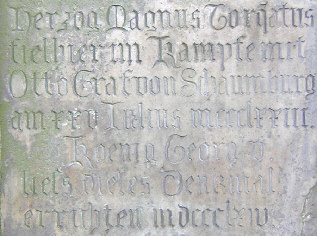 Herzog Magnus Torqatus
fiel hier im Kampfe mit
Otto Graf von Schaumburg
am XXV Iulius MCCCLXXIII.
Koenig Georg V.
lies dieses Denkmal
errichten MDCCCLXIV.